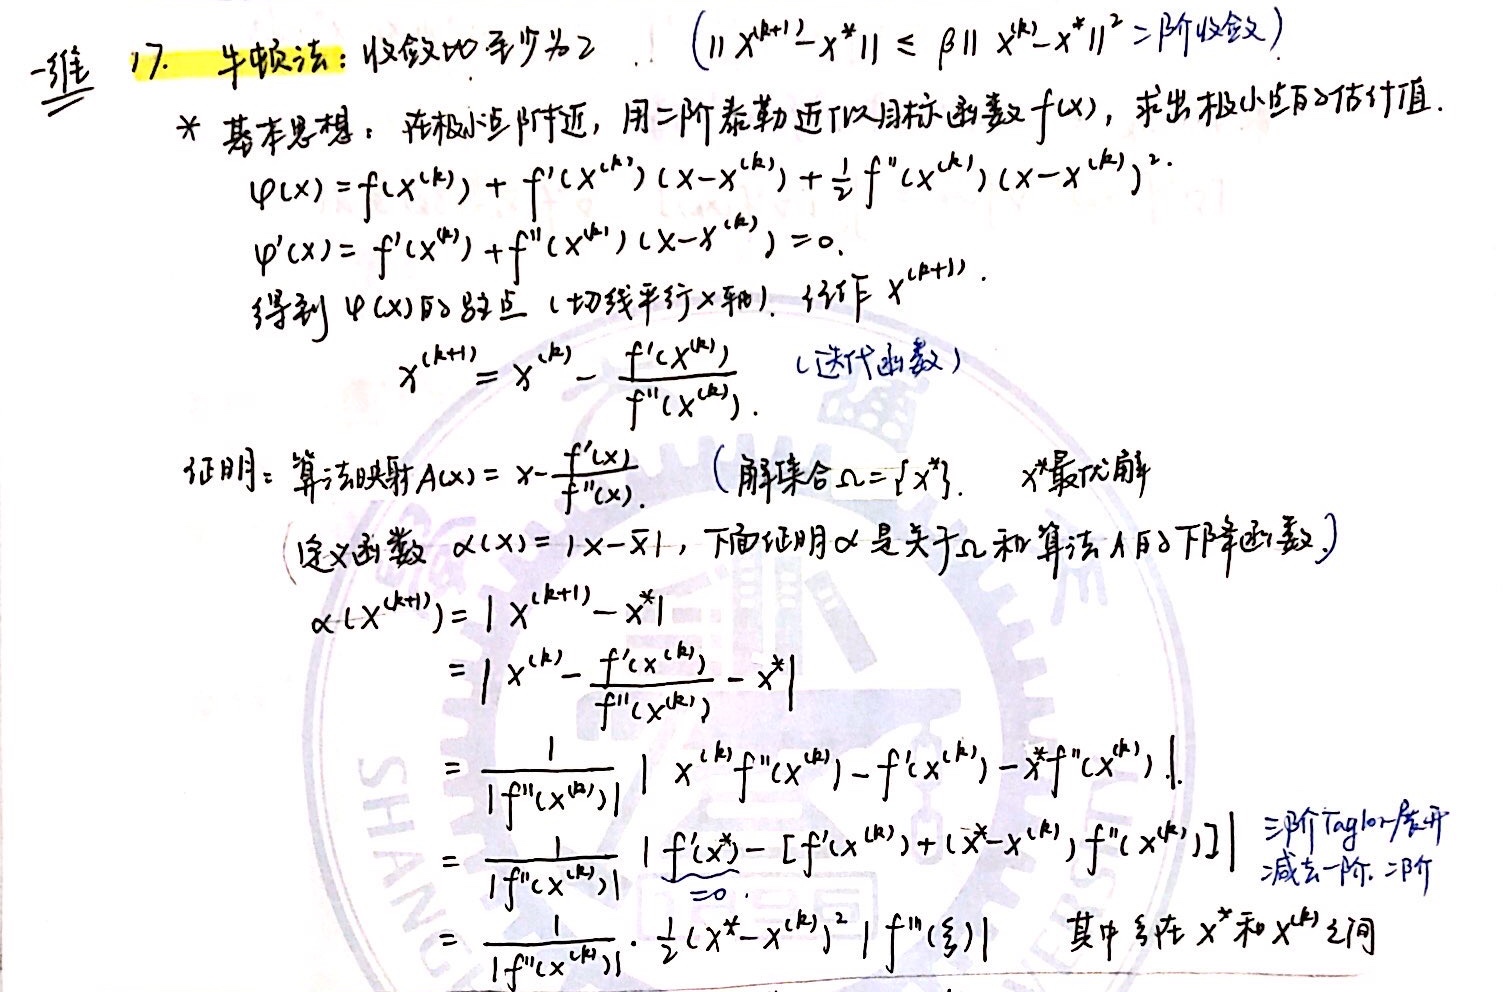 一维 17. 牛顿法：收敛比至少为2 (||x^(k+1) - x*|| ≤ β||x^(k) - x*||² 二阶收敛)
* 基本思想：在极小点附近，用二阶泰勒近似目标函数f(x)，求出极小点的估计值.
φ(x) = f(x^(k)) + f'(x^(k))(x-x^(k)) + 1/2 f''(x^(k))(x-x^(k))².
φ'(x) = f'(x^(k)) + f''(x^(k))(x-x^(k)) = 0.
得到φ(x)的驻点（切线平行x轴）. 记作 x^(k+1).
x^(k+1) = x^(k) - f'(x^(k)) / f''(x^(k)). （迭代函数）
证明：算法映射A(x) = x - f'(x) / f''(x). （解集合Ω={x*}. x*最优解
（定义函数 α(x) = |x-x̄|，下面证明α是关于Ω和算法A的下降函数.）
α(x^(k+1)) = |x^(k+1) - x*|
= |x^(k) - f'(x^(k)) / f''(x^(k)) - x*|
= 1/|f''(x^(k))| |x^(k) f''(x^(k)) - f'(x^(k)) - x* f''(x^(k))|.
= 1/|f''(x^(k))| |f'(x*) - [f'(x^(k)) + (x*-x^(k)) f''(x^(k))]| 三阶Taylor展开
=0. 减去一阶、二阶
= 1/|f''(x^(k))| · 1/2 (x*-x^(k))² |f'''(ξ)| 其中ξ在x*和x^(k)之间
SHANG